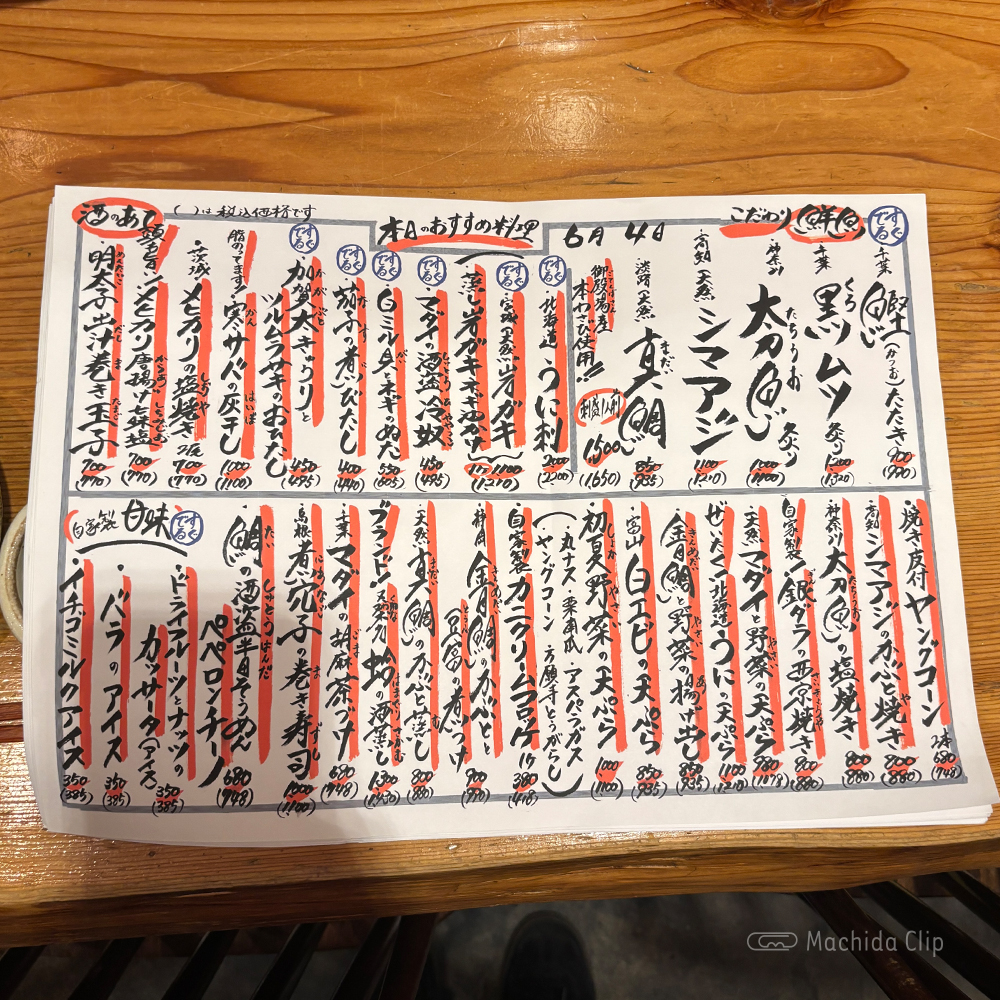 本日のおすすめ料理
6月4日
こだわり鮮魚
すぐでる
千葉 鰹(かつお)たたき 900 (990)
千葉 黒ムツ炙り 1200 (1320)
神奈川 太刀魚炙り 1000 (1100)
高知 天然 シマアジ 1100 (1210)
淡路 天然 真鯛 850 (935)
御殿場産 本わさび使用!!
刺盛1人前 1,500 (1650)
すぐでる 北海道 うに刺 2000 (2200)
すぐでる 宮城 天然 岩ガキ
蒸し岩ガキネギ
1ケ 1100 (1210)
すぐでる マダイの酒盗冷奴 450 (495)
すぐでる 白ミル貝とネギのぬた 550 (605)
すぐでる 茄子の煮びたし 400 (440)
すぐでる 加賀太きゅうりと
ツルムラサキのおひたし 450 (495)
脂のってます! 寒サバの灰干し 1000 (1100)
茨城 メヒカリの塩焼き 700 (770)
メヒカリ唐揚げ七味塩 700 (770)
明太子出汁巻き玉子 700 (770)
酒のあて
( )は税込価格です
焼き皮付ヤングコーン 3本 680 (748)
高知 シマアジのかぶと焼き 800 (880)
神奈川 太刀魚の塩焼き 800 (880)
自家製 銀ダラの西京焼き 800 (880)
天然 マダイと野菜の天ぷら 980 (1078)
ぜいたく 北海道うにの天ぷら 1100 (1210)
金目鯛と野菜の揚げ出し 850 (935)
富山 白エビの天ぷら 850 (935)
初夏野菜の天ぷら 1000 (1100)
(ヤングコーン・丸ナス・アスパラガス
万願寺とうがらし)
自家製 カニクリームコロッケ 1ケ 380 (418)
静岡 金目鯛のかぶとと
豆富の煮つけ 700 (770)
天然 真鯛のかぶと蒸し 800 (880)
ブランド 天然 蛤の酒蒸し 1300
千葉 マダイの胡麻茶づけ 680 (748)
島根 煮穴子の巻き寿司 1000 (1100)
鯛の酒盗半田そうめん
ペペロンチーノ 680 (748)
自家製 甘味 すぐでる
ドライフルーツとナッツの
カッサータ(アイス) 350 (385)
バラのアイス 350 (385)
イチゴミルクアイス 350 (385)
Machida Clip